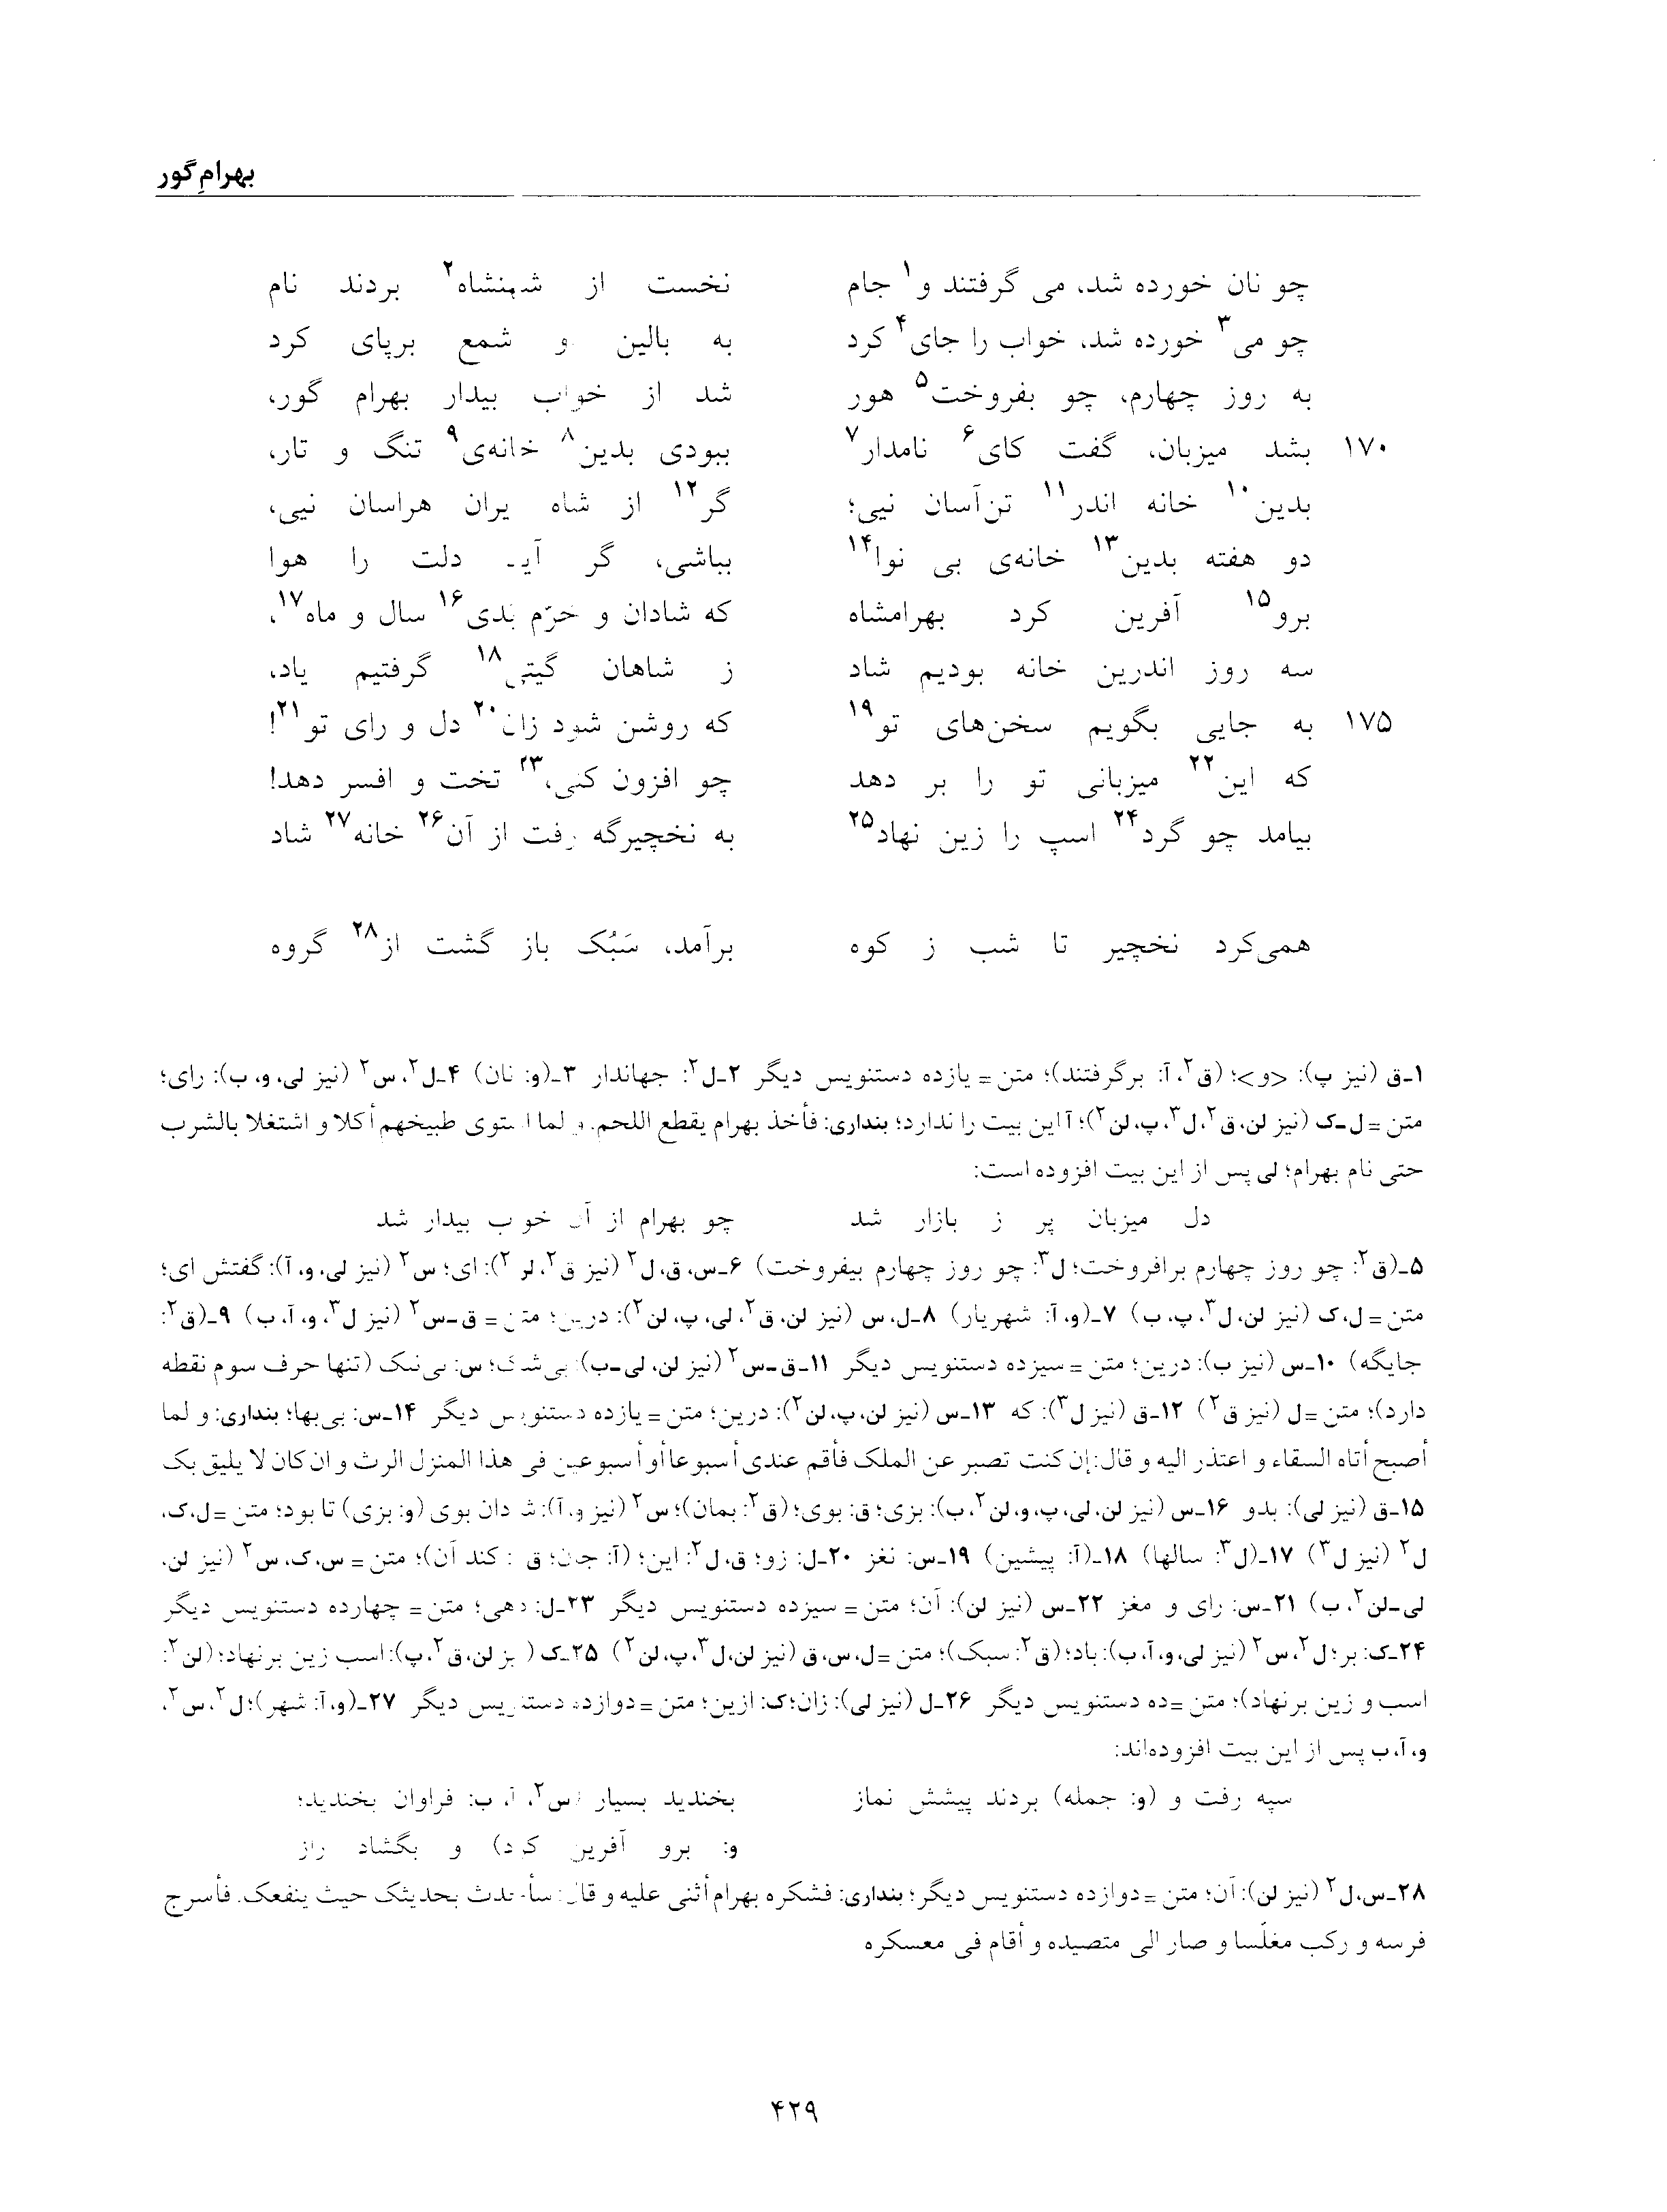 بهرامِ گور
چو نان خورده شد، می گرفتند و۱ جام نخست از شهنشاه۲ بردند نام
چو می۳ خورده شد، خواب را جای۴ کرد به بالین و شمع برپای کرد
به روز چهارم، چو بفروخت۵ هور شد از خواب بیدار بهرام گور،
۱۷۰ بشد میزبان، گفت کای۶ نامدار۷ ببودی بدین۸ خانه‌ی۹ تنگ و تار،
بدین۱۰ خانه اندر۱۱ تن‌آسان نیی؛ گر۱۲ از شاه یران هراسان نیی،
دو هفته بدین۱۳ خانه‌ی بی نوا۱۴ بباشی، گر آید دلت را هوا
برو۱۵ آفرین کرد بهرامشاه که شادان و خرّم بدی۱۶ سال و ماه۱۷،
سه روز اندرین خانه بودیم شاد ز شاهان گیتی۱۸ گرفتیم یاد،
۱۷۵ به جایی بگویم سخن‌های تو۱۹ که روشن شود زان۲۰ دل و رای تو۲۱!
که این۲۲ میزبانی تو را بر دهد چو افزون کنی،۲۳ تخت و افسر دهد!
بیامد چو گرد۲۴ اسپ را زین نهاد۲۵ به نخچیرگه رفت از آن۲۶ خانه۲۷ شاد
همی‌کرد نخچیر تا شب ز کوه برآمد، سَبُک باز گشت از۲۸ گروه
۱ـ ق (نیز پ): <و>؛ (ق۲، آ: برگرفتند)؛ متن = یازده دستنویس دیگر ۲ـ ل۲: جهاندار ۳ـ (و: نان) ۴ـ ل۲، س۲ (نیز لی، و، ب): رای؛
متن = ل ـ ک (نیز لن، ق۲، ل۳، پ، لن۲)؛ آ این بیت را ندارد؛ بنداری: فأخذ بهرام یقطع اللحم. و لما استوی طبیخهم أکلا و اشتغلا بالشرب
حتی نام بهرام؛ لی پس از این بیت افزوده است:
دل میزبان پر ز بازار شد چو بهرام از آن خواب بیدار شد
۵ـ (ق۲: چو روز چهارم برافروخت؛ ل۳: چو روز چهارم بیفروخت) ۶ـ س، ق، ل۲ (نیز ق۲، لن۲): ای؛ س۲ (نیز لی، و، آ): گفتش ای؛
متن = ل، ک (نیز لن، ل۳، پ، ب) ۷ـ (و، آ: شهریار) ۸ـ ل، س (نیز لن، ق۲، لی، پ، لن۲): درین؛ متن = ق ـ س۲ (نیز ل۳، و، آ، ب) ۹ـ (ق۲:
جایگه) ۱۰ـ س (نیز ب): درین؛ متن = سیزده دستنویس دیگر ۱۱ـ ق ـ س۲ (نیز لن، لی ـ ب): بی‌شک؛ س: بی‌نیک (تنها حرف سوم نقطه
دارد)؛ متن = ل (نیز ق۲) ۱۲ـ ق (نیز ل۳): که ۱۳ـ س (نیز لن، پ، لن۲): درین؛ متن = یازده دستنویس دیگر ۱۴ـ س: بی‌بها؛ بنداری: و لما
أصبح أتاه السقاء و اعتذر الیه و قال: إن کنت تصبر عن الملک فأقم عندی أسبوعا أو أسبوعین فی هذا المنزل الرث و ان کان لا یلیق بک
۱۵ـ ق (نیز لی): بدو ۱۶ـ س (نیز لن، لی، پ، و، لن۲، ب): بزی؛ ق: بوی؛ (ق۲: بمان)؛ س۲ (نیز و، آ): شادان بوی (و: بزی) تا بود؛ متن = ل، ک،
ل۲ (نیز ل۳) ۱۷ـ (ل۳: سالها) ۱۸ـ (آ: پیشین) ۱۹ـ س: نغز ۲۰ـ ل: زو؛ ق، ل۲: این؛ (آ: جان؛ ق۲: کند آن)؛ متن = س، ک، س۲ (نیز لن،
لی ـ لن۲، ب) ۲۱ـ س: رای و مغز ۲۲ـ س (نیز لن): آن؛ متن = سیزده دستنویس دیگر ۲۳ـ ل: دهی؛ متن = چهارده دستنویس دیگر
۲۴ـ ک: بر؛ ل۲، س۲ (نیز لی، و، آ، ب): باد؛ (ق۲: سبک)؛ متن = ل، س، ق (نیز لن، ل۳، پ، لن۲) ۲۵ـ ک (نیز لن، ق۲، پ): اسب زین برنهاد؛ (لن۲:
اسب و زین برنهاد)؛ متن = ده دستنویس دیگر ۲۶ـ ل (نیز لی): زان؛ ک: ازین؛ متن = دوازده دستنویس دیگر ۲۷ـ (و، آ: شهر)؛ ل۲، س۲،
و، آ، ب پس از این بیت افزوده‌اند:
سپه رفت و (و: جمله) بردند پیشش نماز بخندید بسیار (س۲، آ، ب: فراوان بخندید؛
و: برو آفرین کرد) و بگشاد راز
۲۸ـ س، ل۲ (نیز لن): آن؛ متن = دوازده دستنویس دیگر؛ بنداری: فشکره بهرام أثنی علیه و قال: سأحدث بحدیثک حیث ینفعک. فأسرج
فرسه و رکب مغلّسا و صار الی متصیده و أقام فی معسکره
۴۲۹